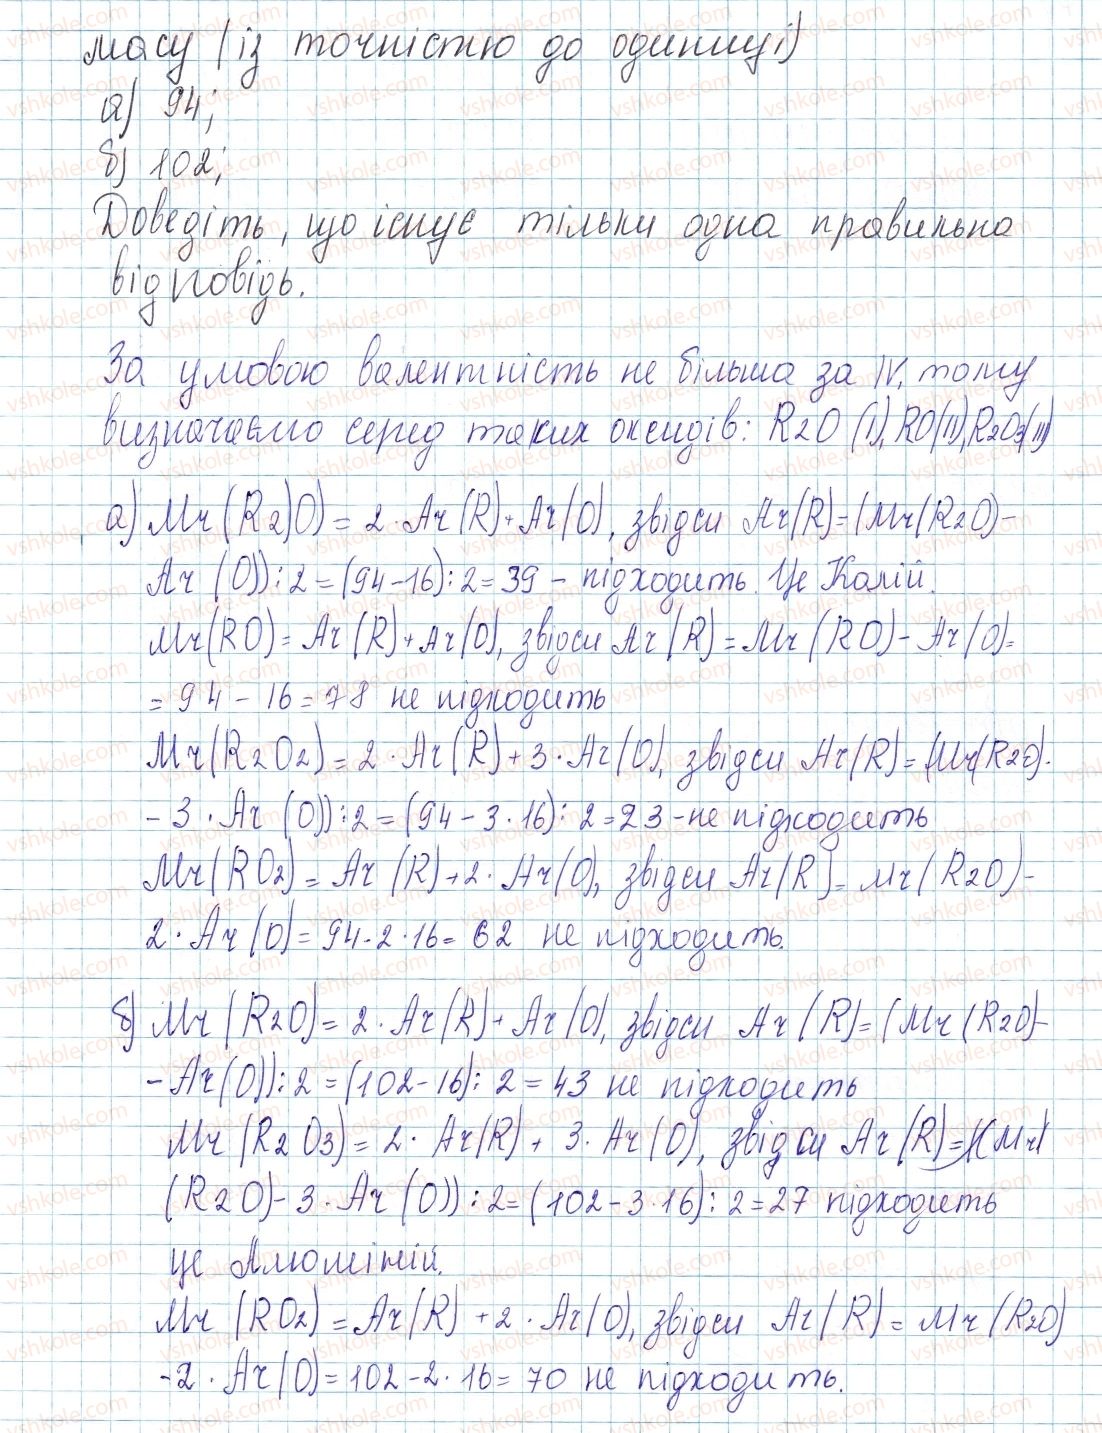 масу (із точністю до одиниці)
а) 94;
б) 102;
Доведіть, що існує тільки одна правильна
відповідь.
За умовою валентність не більша за IV, тому
визначаємо серед таких оксидів: R2O (I), RO(II), R2O3(III)
а) Mr(R2)O) = 2·Ar(R)+Ar(O), звідси Ar(R)=(Mr(R2O)-
Ar(O)):2=(94-16):2=39 - підходить. Це Калій.
Mr(RO)=Ar(R)+Ar(O), звідси Ar(R)=Mr(RO)-Ar(O)=
=94-16=78 не підходить
Mr(R2O2)=2·Ar(R)+3·Ar(O), звідси Ar(R)=(Mr(R2O)·
-3·Ar(O)):2=(94-3·16):2=23-не підходить
Mr(RO2)=Ar(R)+2·Ar(O), звідси Ar(R)=Mr(R2O)-
2·Ar(O)=94-2·16=62 не підходить.
б) Mr(R2O)=2·Ar(R)+Ar(O), звідси Ar(R)=(Mr(R2O)-
-Ar(O)):2=(102-16):2=43 не підходить
Mr(R2O3)=2·Ar(R)+3·Ar(O), звідси Ar(R)=((Mr)
(R2O)-3·Ar(O)):2=(102-3·16):2=27 підходить
це Алюміній.
Mr(RO2)=Ar(R)+2·Ar(O), звідси Ar(R)=Mr(R2O)
-2·Ar(O)=102-2·16=70 не підходить.